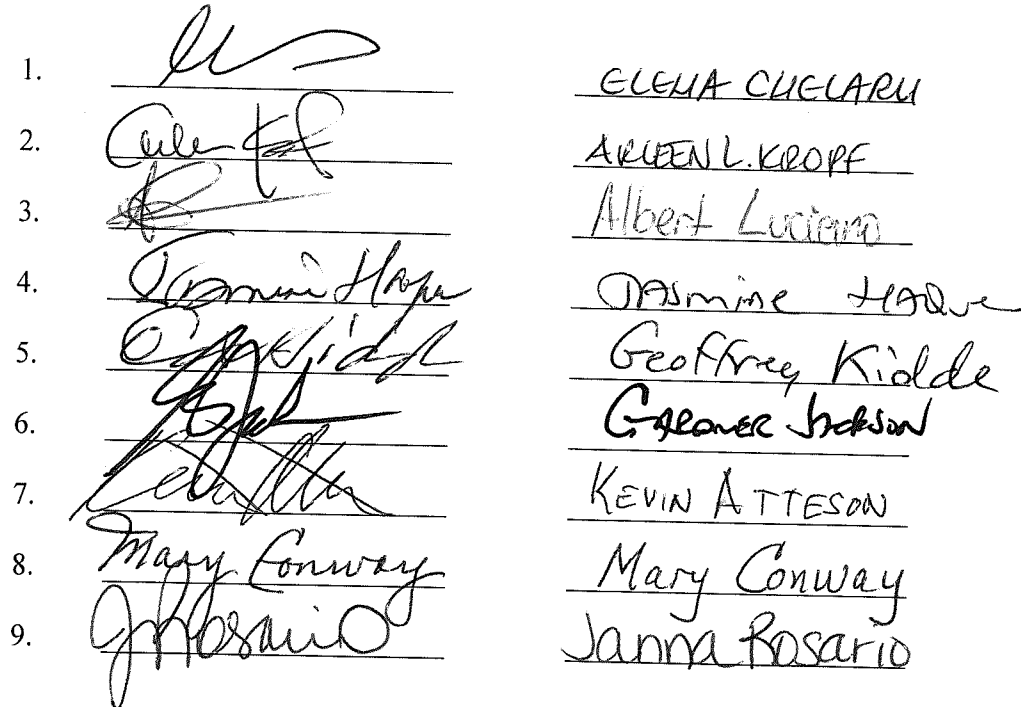 1. ELENA CHELARU
2. ARLEEN L. KROPF
3. Albert Luciano
4. Jasmine Haque JASmine HAQue
5. Geoffrey Kidde
6. GARDNER JACKSON
7. KEVIN ATTESON
8. Mary Conway Mary Conway
9. JRosario Janna Rosario